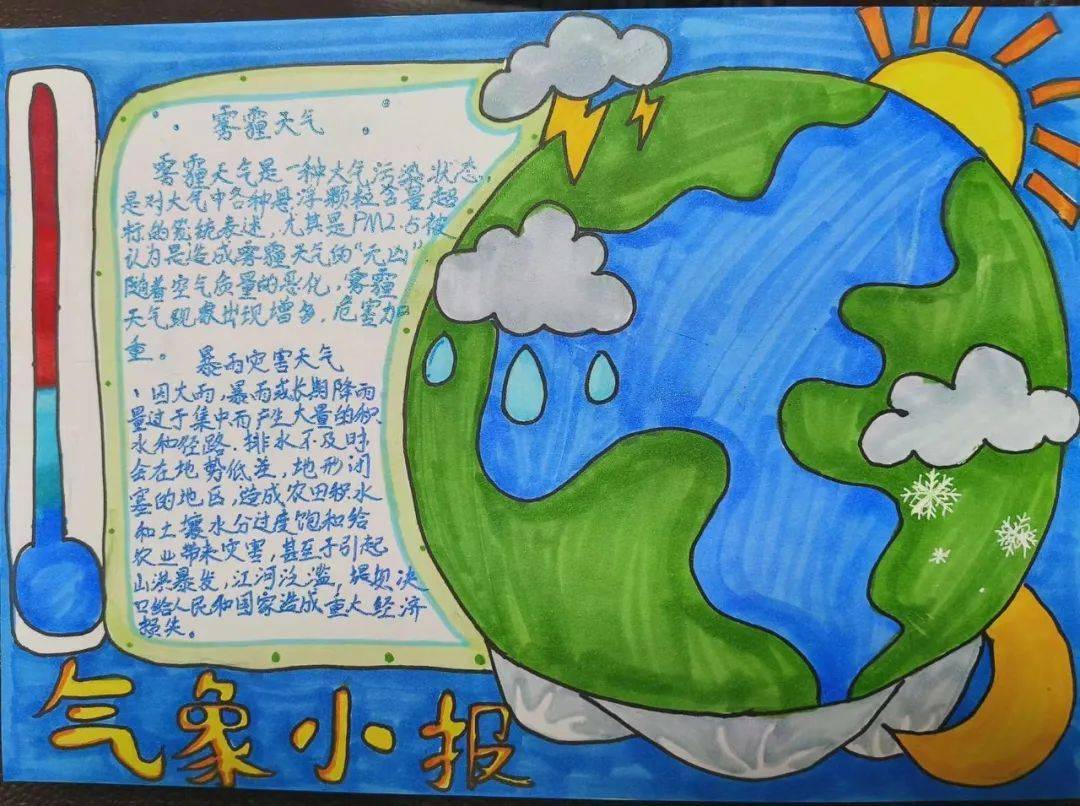 雾霾天气
雾霾天气是一种大气污染状态,
是对大气中各种悬浮颗粒含量超
标的笼统表述,尤其是PM2.5被
认为是造成雾霾天气的“元凶”
随着空气质量的恶化,雾霾
天气现象出现增多.危害加
重。
暴雨灾害天气
、因大雨,暴雨或长期降雨
量过于集中而产生大量的积
水和径路.排水不及时
会在地势低洼,地形闭
塞的地区,造成农田积水
和土壤水分过度饱和给
农业带来灾害,甚至于引起
山洪暴发,江河泛滥,堤坝决
口给人民和国家造成重大经济
损失。
气象小报